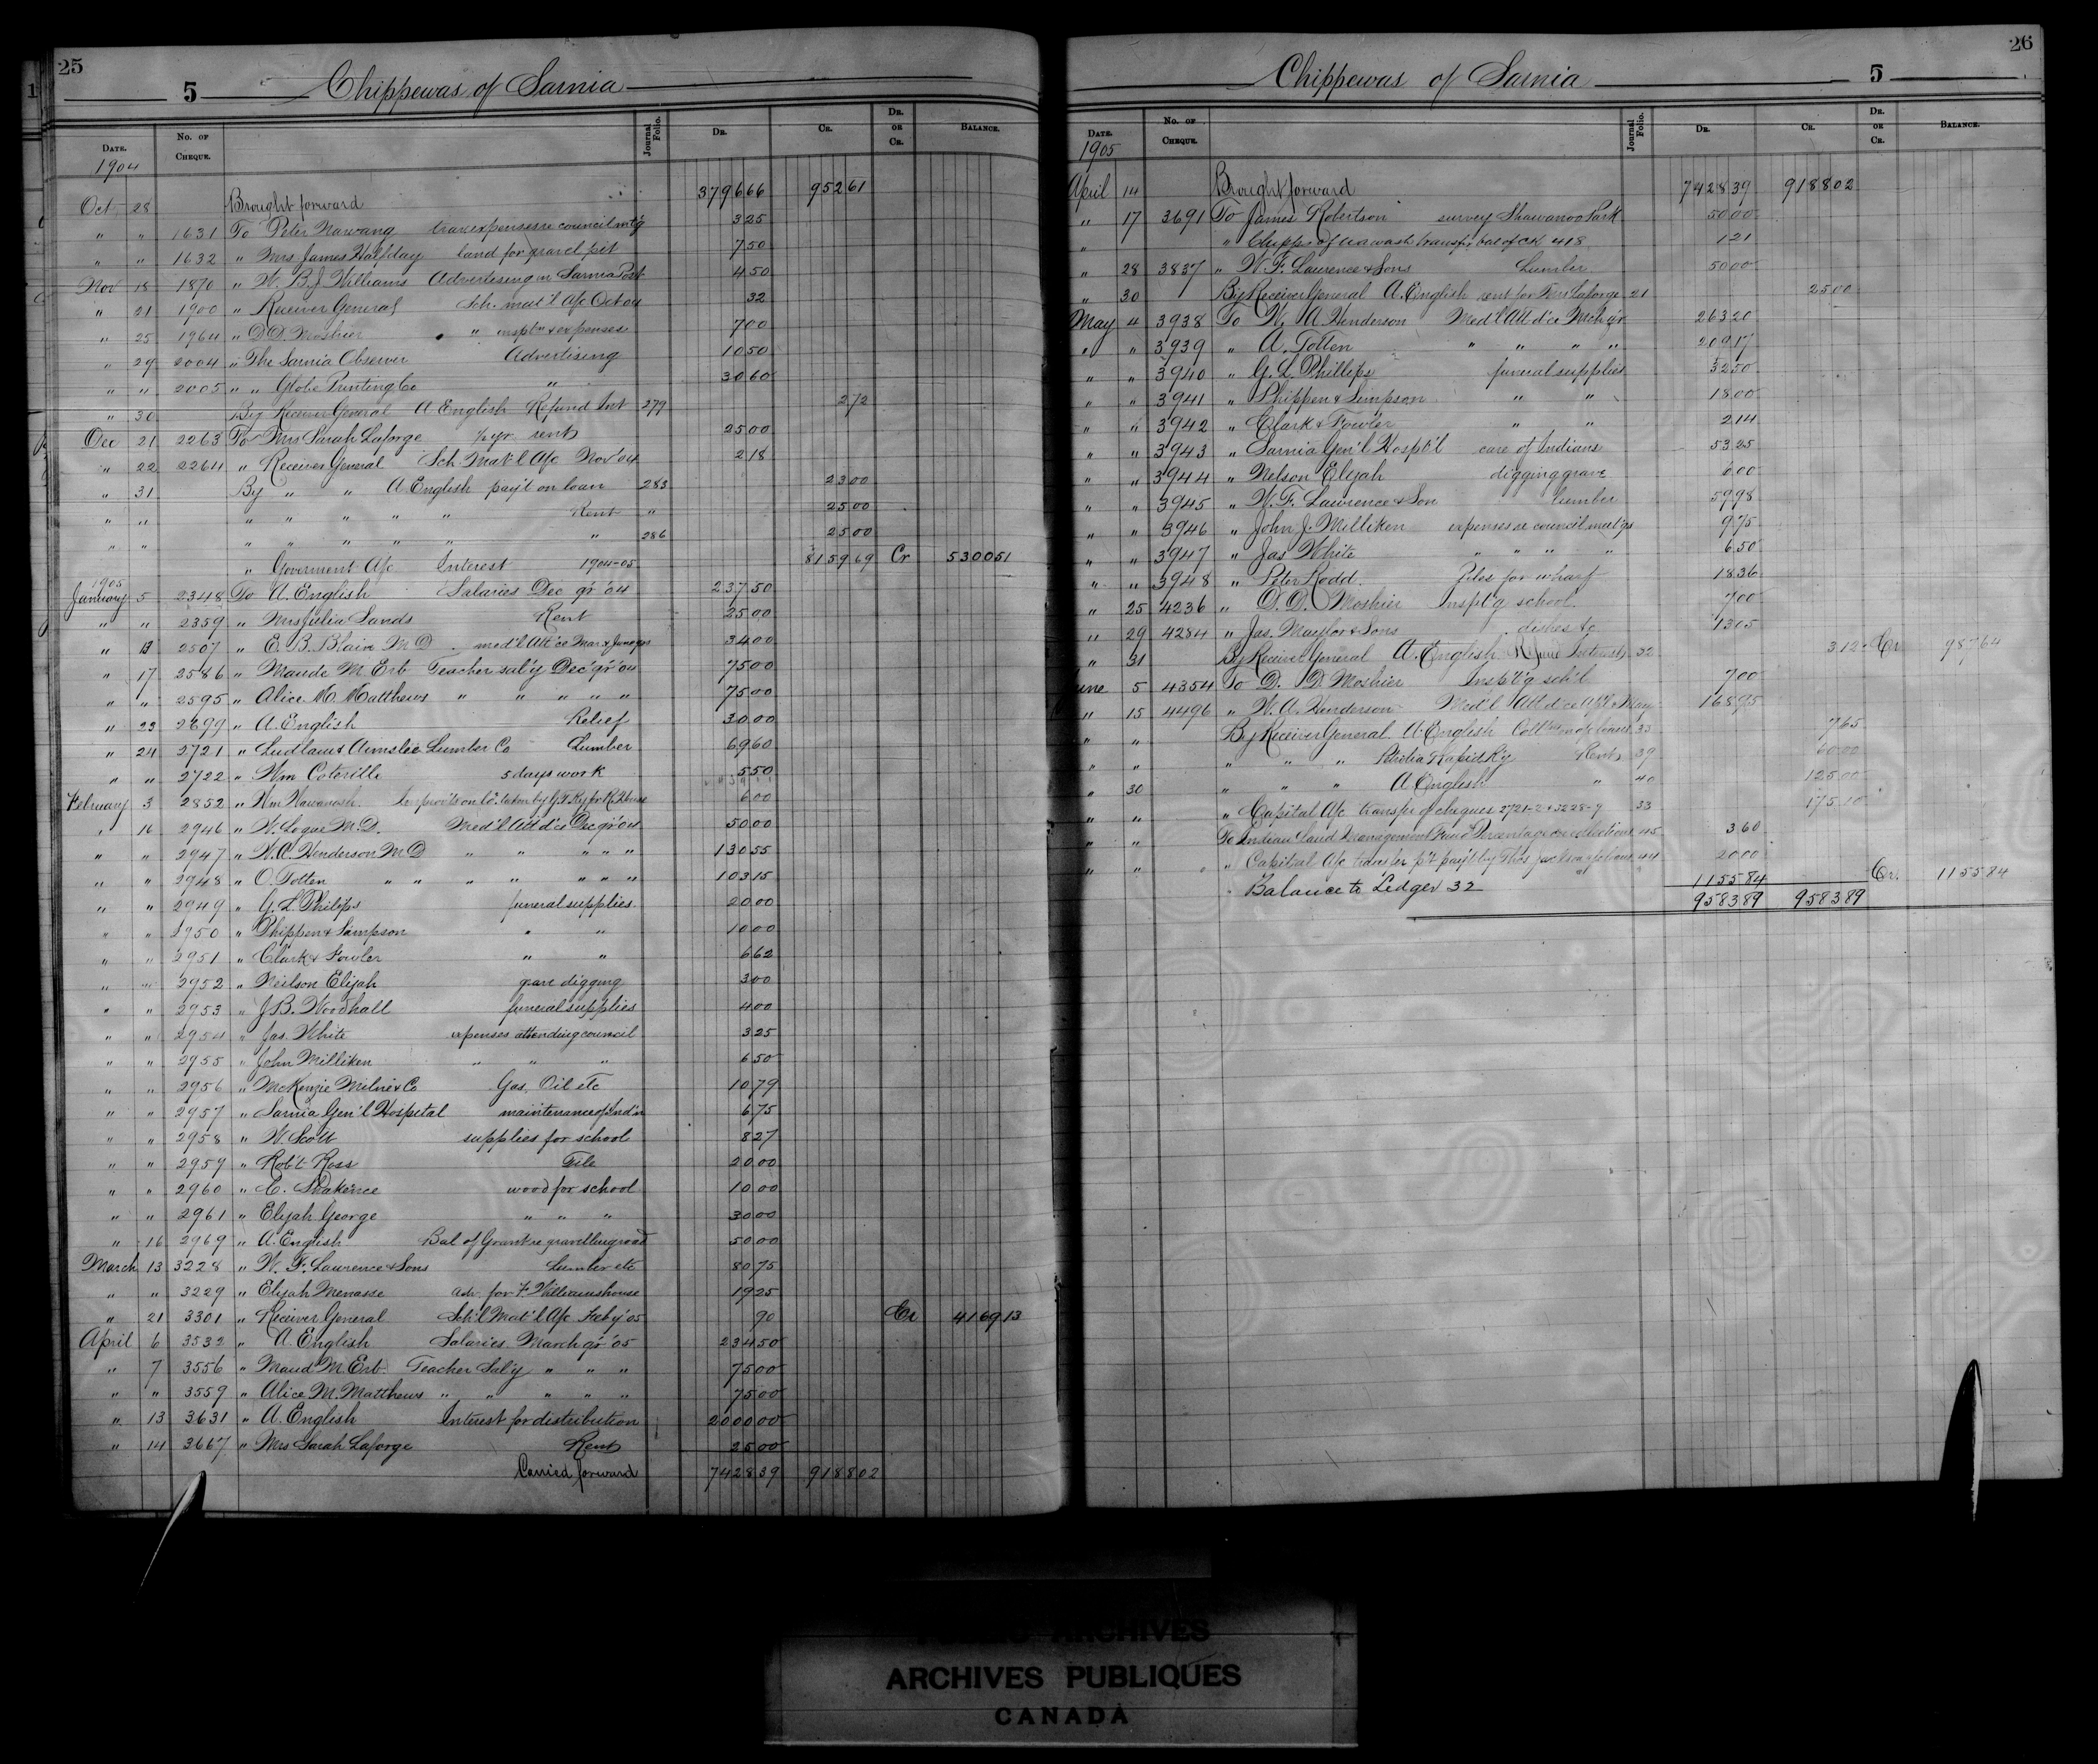 25
5 Chippewas of Sarnia
Date. No. of Cheque. Journal Folio. Dr. Cr. Dr. or Cr. Balance.
1904
Oct 28 Brought forward 3796 66 952 61
" " 1631 To Peter Nawang trav expenses re council mt'g 3 25
" " 1632 " Mrs James Halfday land for gravel pit 7 50
Nov 18 1870 " W. B. J. Williams Advertising in Sarnia Post 4 50
" 21 1900 " Receiver General Sch. mat'l A/c Oct 04 32
" 25 1964 " D. D. Moshier " insptn & expenses 7 00
" 29 2004 " The Sarnia Observer Advertising 10 50
" " 2005 " " Globe Printing Co " 30 60
" 30 By Receiver General A English Refund Int 279 2 72
Dec 21 2263 To Mrs Sarah Laforge 1/2 yr rent 25 00
" 22 2264 " Receiver General Sch. Mat'l A/c Nov '04 2 18
" 31 By " " A English pay't on loan 283 23 00
" " " " " " " Rent " 25 00
" " " " " " " " 286 25 00
" Goverment A/c Interest 1904-05 8159 69 Cr 5300 51
1905
January 5 2348 To A. English Salaries Dec qr '04 237 50
" " 2359 " Mrs Julia Sands Rent 25 00
" 13 2507 " E. B. Blain M D med'l Att'ce Mar & June qrs 34 00
" 17 2586 " Maude M. Erb Teacher sal'y Dec qr '04 75 00
" " 2595 " Alice M. Matthews " " " " " 75 00
" 23 2699 " A. English Relief 30 00
" 24 2721 " Ludlam & Ainslie Lumber Co Lumber 69 60
" " 2722 " Wm Coterille 5 days work 5 50
February 3 2852 " Wm Wawanosh Improv'ts on lo. taken by G T Ry for R. House 6 00
" 16 2946 " W. Logie M.D. Med'l Att'd'ce Dec qr '04 50 00
" " 2947 " W. A. Henderson M D " " " " " 130 55
" " 2948 " O. Totten " " " " " " " 103 15
" " 2949 " G. L. Philips funeral supplies 20 00
" " 2950 " Phippen & Simpson " " 10 00
" " 2951 " Clark & Fowler " " 6 62
" " 2952 " Neilson Elijah grave digging 3 00
" " 2953 " J. B. Woodhall funeral supplies 4 00
" " 2954 " Jas. White expenses attending council 3 25
" " 2955 " John Milliken " " " 6 50
" " 2956 " McKenzie Milne & Co Gas, Oil etc 10 79
" " 2957 " Sarnia Gen'l Hospital maintenance of Ind'n 6 75
" " 2958 " W. Scott supplies for school 8 27
" " 2959 " Rob't Ross Tile 20 00
" " 2960 " C. wood for school 10 00
" " 2961 " Elijah George " " " 30 00
" 16 2969 " A. English Bal of Grant re gravelling road 50 00
March 13 3228 " W. F. Laurence & Sons Lumber etc 80 75
" " 3229 " Elijah Menasse adv. for F Williams house 19 25
" 21 3301 " Receiver General Sch'l Mat'l A/c Feby '05 90 Cr 4169 13
April 6 3532 " A. English Salaries March qr '05 234 50
" 7 3556 " Maud M. Erb Teacher Sal'y " " " 75 00
" " 3559 " Alice M. Matthews " " " " " 75 00
" 13 3631 " A. English Interest for distribution 2000 00
" 14 3667 " Mrs Sarah Laforge Rent 25 00
Carried forward 7428 39 9188 02
26
Chippewas of Sarnia 5
Date. No. of Cheque. Journal Folio. Dr. Cr. Dr. or Cr. Balance.
1905
April 14 Brought forward 7428 39 9188 02
" 17 3691 To James Robertson survey Shawanoo Park 50 00
" " Chipps of transfer bal of ck 418 1 21
" 28 3837 " W. F. Laurence & Sons Lumber 50 00
" 30 By Receiver General A. English rent for Mrs Laforge 21 25 00
May 4 3938 To W. A Henderson Med'l Att'd'ce Mch qr 263 20
" " 3939 " A. Totten " " " " 209 17
" " 3940 " G. L. Phillips funeral supplies 32 50
" " 3941 " Phippen & Simpson " " 18 00
" " 3942 " Clark & Fowler " " 2 14
" " 3943 " Sarnia Gen'l Hospt'l care of Indians 53 25
" " 3944 " Nelson Elijah digging grave 6 00
" " 3945 " W. F. Lawrence & Son lumber 59 98
" " 3946 " John J. Milliken expenses re council meet'gs 9 75
" " 3947 " Jas White " " " " 6 50
" " 3948 " Peter Rodd. Piles for wharf 18 36
" 25 4236 " D. D. Moshier Inspt'g school 7 00
" 29 4284 " Jas. Maylor & Sons dishes &c 13 05
" 31 By Receiver General A. English Refund Interest 32 3 12 Cr 987 64
June 5 4354 To D. D. Moshier Inspt'g sch'l 7 00
" 15 4496 " W. A. Henderson Med'l Att'd'ce Ap'l & May 168 95
" " By Receiver General A. English Coll'ns on a/c loans 35 7 65
" " " " " Petrolia Rapid Ry Rent 39 60 00
" 30 " " " A English " 40 125 00
" " " Capital A/c transfer of cheques 2721-2 & 3228-9 33 175 10
" " To Indian Land Management Fund Percentage on collections 45 3 60
" " " Capital A/c transfer p't pay't by Thos Jackson 44 20 00
" Balance to Ledger 32 1155 84 Cr. 1155 84
9583 89 9583 89
ARCHIVES
ARCHIVES PUBLIQUES
CANADA